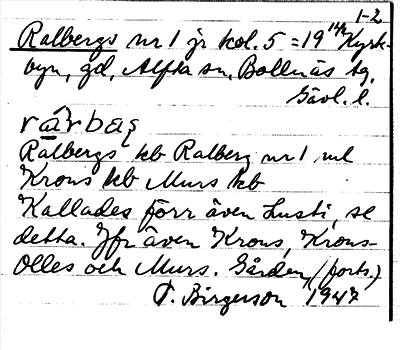 1-2
Ralbergs nr 1 jr kol. 5 = 19 14/12 Kyrk-
byn, gd, Alfta sn, Bollnäs tg.
Gävl. l.
rárbaş
Ralbergs kb Ralberg nr 1 ml
Krons kb Murs kb
Kallades förr även Lusti, se
detta. Jfr även Krons, Krons-
Olles och Murs. Gården, (forts.)
T. Birgerson 1947